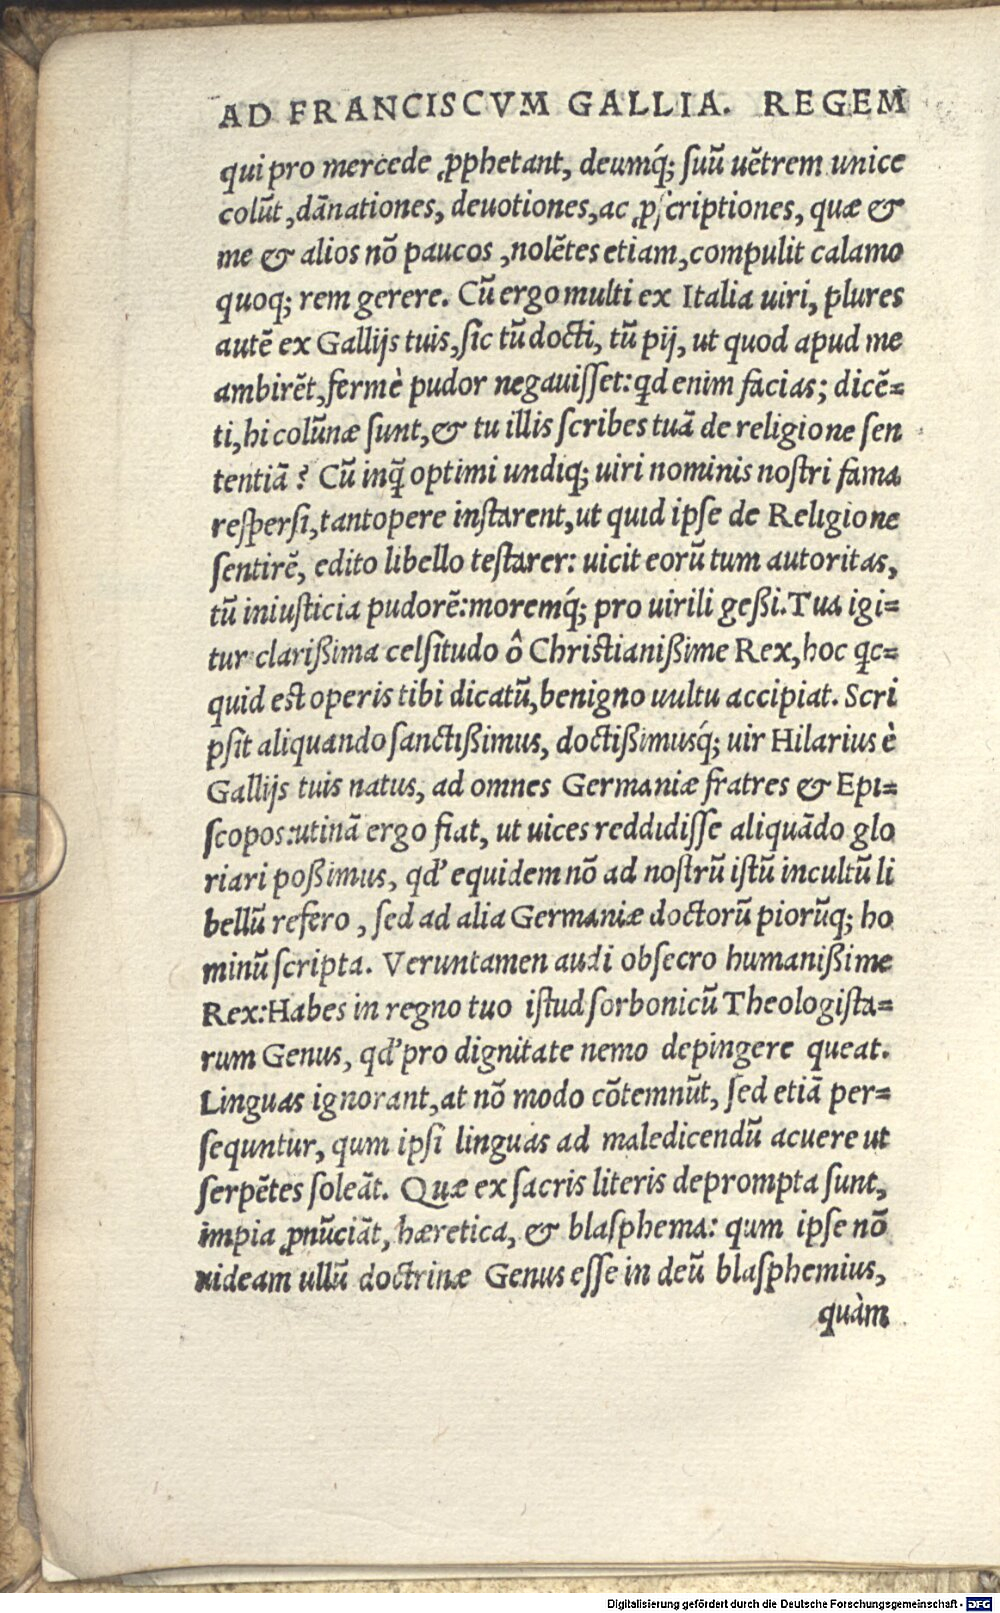 AD FRANCISCVM GALLIA. REGEM
qui pro mercede ꝓphetant, deumq́; ſuũ uẽtrem unice
colũt, dãnationes, deuotiones, ac ꝓſcriptiones, quæ &
me & alios nõ paucos, nolẽtes etiam, compulit calamo
quoq; rem gerere. Cũ ergo multi ex Italia uiri, plures
autẽ ex Gallijs tuis, ſic tũ docti, tũ pij, ut quod apud me
ambirẽt, fermè pudor negauiſſet: qd enim facias; dicẽ=
ti, hi colũnæ ſunt, & tu illis ſcribes tuã de religione ſen
tentiã? Cũ inq̃ optimi undiq; uiri nominis noſtri fama
reſperſi, tantopere inſtarent, ut quid ipſe de Religione
ſentirẽ, edito libello teſtarer: uicit eorũ tum autoritas,
tũ iniuſticia pudorẽ: moremq́; pro uirili geßi. Tua igi=
tur clarißima celſitudo ô Chriſtianißime Rex, hoc qc=
quid eſt operis tibi dicatũ, benigno uultu accipiat. Scri
pſit aliquando ſanctißimus, doctißimusq́; uir Hilarius è
Gallijs tuis natus, ad omnes Germaniæ fratres & Epi=
ſcopos: utinã ergo fiat, ut uices reddidiſſe aliquãdo glo
riari poßimus, qd' equidem nõ ad noſtrũ iſtũ incultũ li
bellũ refero, ſed ad alia Germaniæ doctorũ piorũq; ho
minũ ſcripta. Veruntamen audi obſecro humanißime
Rex: Habes in regno tuo iſtud ſorbonicũ Theologiſta=
rum Genus, qd' pro dignitate nemo depingere queat.
Linguas ignorant, at nõ modo cõtemnũt, ſed etiã per=
ſequntur, qum ipſi linguas ad maledicendũ acuere ut
ſerpẽtes ſoleãt. Quæ ex ſacris literis deprompta ſunt,
impia ꝓnũciãt, hæretica, & blaſphema: qum ipſe nõ
uideam ullũ doctrinæ Genus eſſe in deũ blaſphemius,
quàm
Digitalisierung gefördert durch die Deutsche Forschungsgemeinschaft - DFG